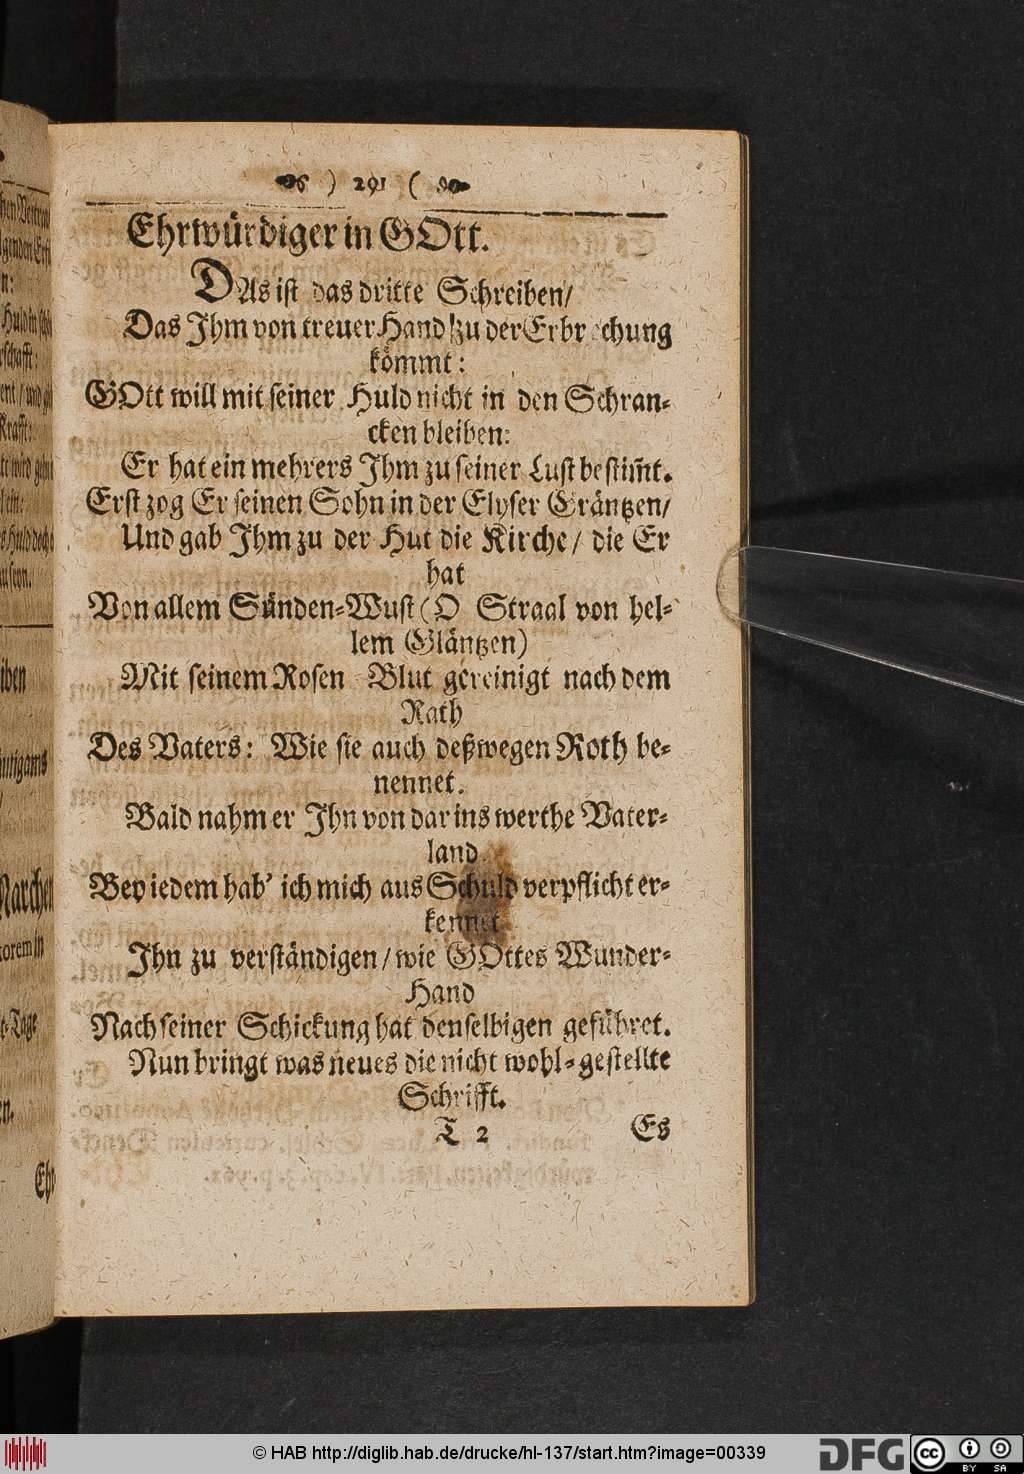 ) 291 (
Ehrwürdiger in GOtt.
DAs ist das dritte Schreiben/
Das Ihm von treuer Hand zu der Erbrechung
kömmt:
GOtt will mit seiner Huld nicht in den Schran-
cken bleiben:
Er hat ein mehrers Ihm zu seiner Lust bestim̅t.
Erst zog Er seinen Sohn in der Elyser Gräntzen/
Und gab Ihm zu der Hut die Kirche/ die Er
hat
Von allem Sünden-Wust (O Straal von hel-
lem Gläntzen)
Mit seinem Rosen Blut gereinigt nach dem
Rath
Des Vaters: Wie sie auch deßwegen Roth be-
nennet.
Bald nahm er Ihn von dar ins werthe Vater-
land
Bey iedem hab' ich mich aus Schuld verpflicht er-
kennet
Ihn zu verständigen/ wie GOttes Wunder-
Hand
Nach seiner Schickung hat denselbigen geführet.
Nun bringt was neues die nicht wohl-gestellte
Schrifft.
T 2 Es
© HAB http://diglib.hab.de/drucke/hl-137/start.htm?image=00339
DFG
cc BY SA